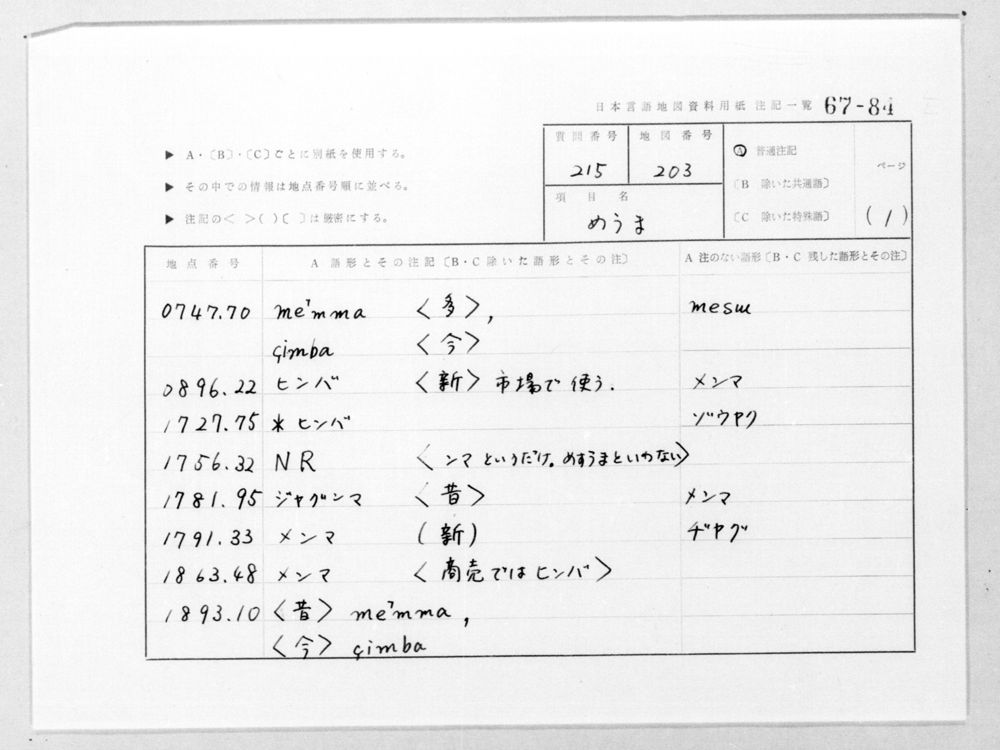 日本言語地図資料用紙 注記一覧 67-84
▶ A・〔B〕・〔C〕ごとに別紙を使用する。
▶ その中での情報は地点番号順に並べる。
▶ 注記の< >( )〔 〕は厳密にする。
質問番号 地図番号 Ⓐ 普通注記 ページ
215 203
〔B 除いた共通語〕
項目名
めうま
〔C 除いた特殊語〕 (1)
地点番号 A 語形とその注記〔B・C除いた語形とその注〕 A 注のない語形〔B・C 残した語形とその注〕
0747.70 meˀmma 〈多〉, mesɯ
çimba 〈今〉
0896.22 ヒンバ 〈新〉市場で使う. メンマ
1727.75 * ヒンバ ゾウヤク
1756.32 NR 〈ンマというだけ。めすうまといわない〉
1781.95 ジャグンマ 〈昔〉 メンマ
1791.33 メンマ (新) ヂヤグ
1863.48 メンマ 〈商売ではヒンバ〉
1893.10 〈昔〉 meˀmma,
〈今〉 çimba